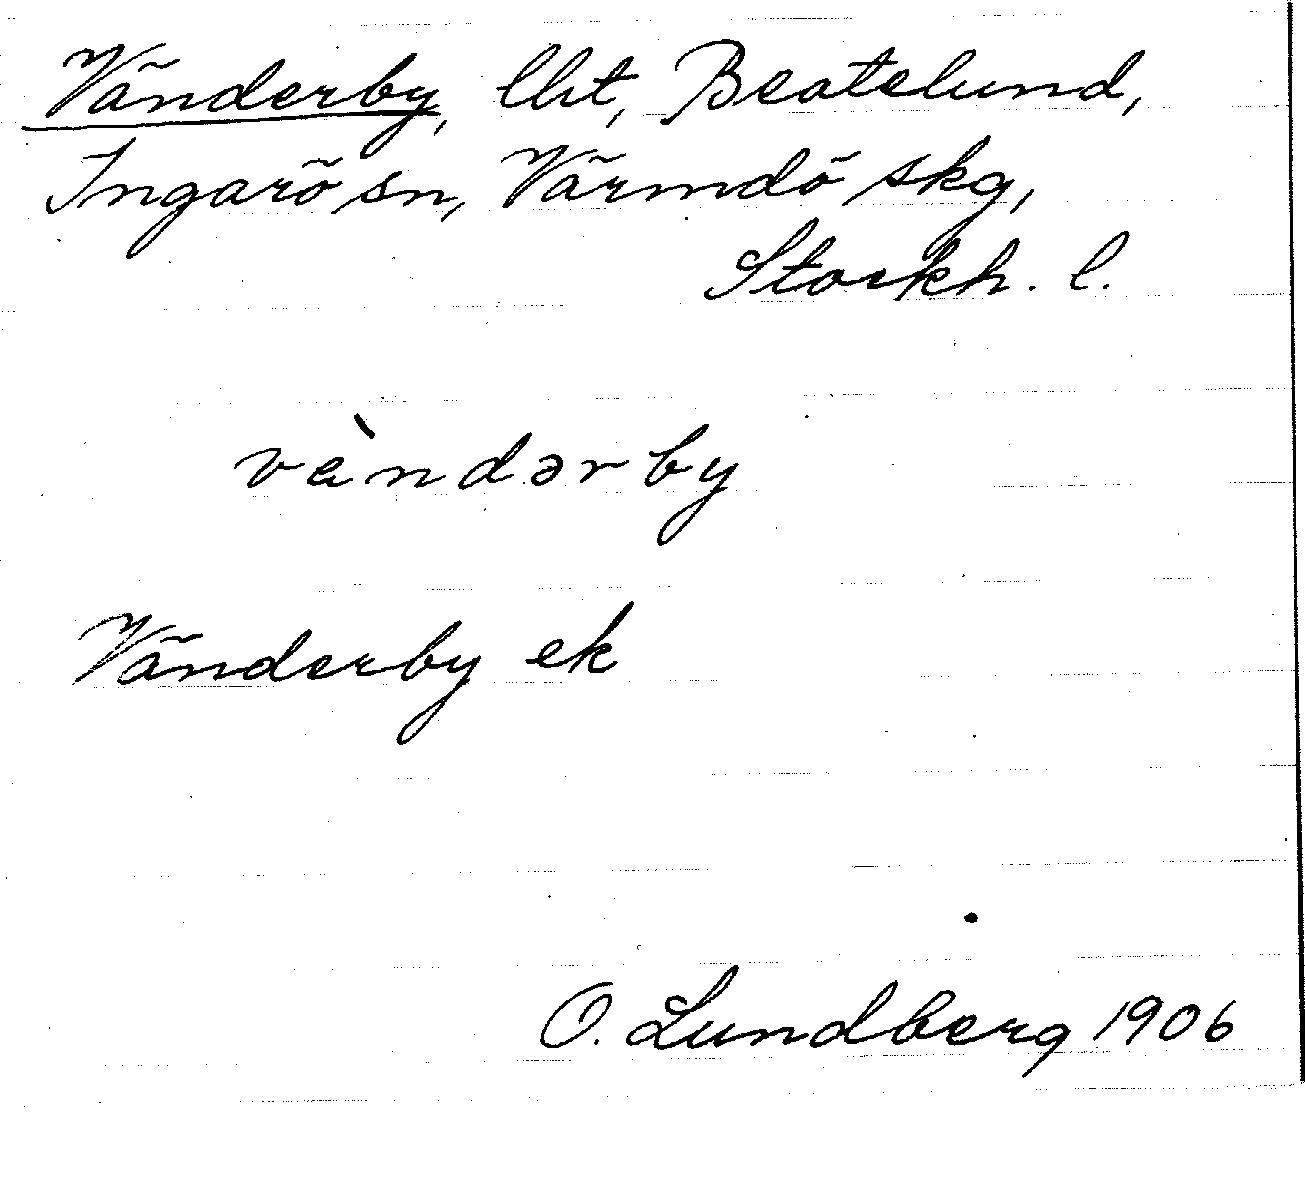 Vänderby, lht, Beatelund,
Ingarö sn, Värmdö skg,
Stockh. l.
vèndərby
Vänderby ek
O. Lundberg 1906